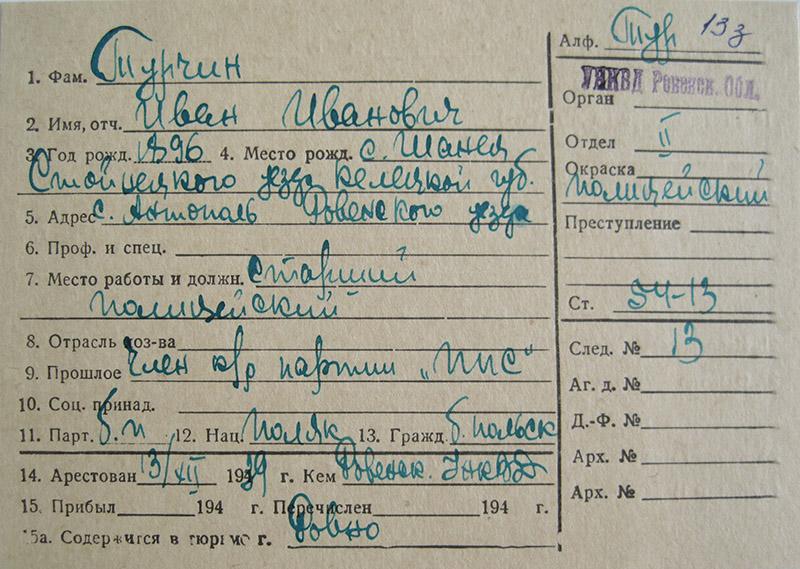 1. Фам. Турчин
2. Имя, отч. Иван Иванович
3. Год рожд. 1896 4. Место рожд. с. Шанец
Стойнецкого уезда Келецкой губ.
5. Адрес с. Антополь Ровенского уезда
6. Проф. и спец.
7. Место работы и должн. Старший
полицейский
8. Отрасль хоз-ва
9. Прошлое Член к/р партии „ППС“
10. Соц. принад.
11. Парт. б.п 12. Нац. Поляк 13. Гражд. б. польск
14. Арестован 13/XII 1939 г. Кем Ровенск. УНКВД
15. Прибыл 194 г. Перечислен 194 г.
15а. Содержится в тюрьмо г. Ровно
Алф. Тур 13з
УНКВД Ровенск. Обл.
Орган
Отдел II
Окраска
полицейский
Преступление
Ст. 54-13
След. № 13
Аг. д. №
Д.-Ф. №
Арх. №
Арх. №